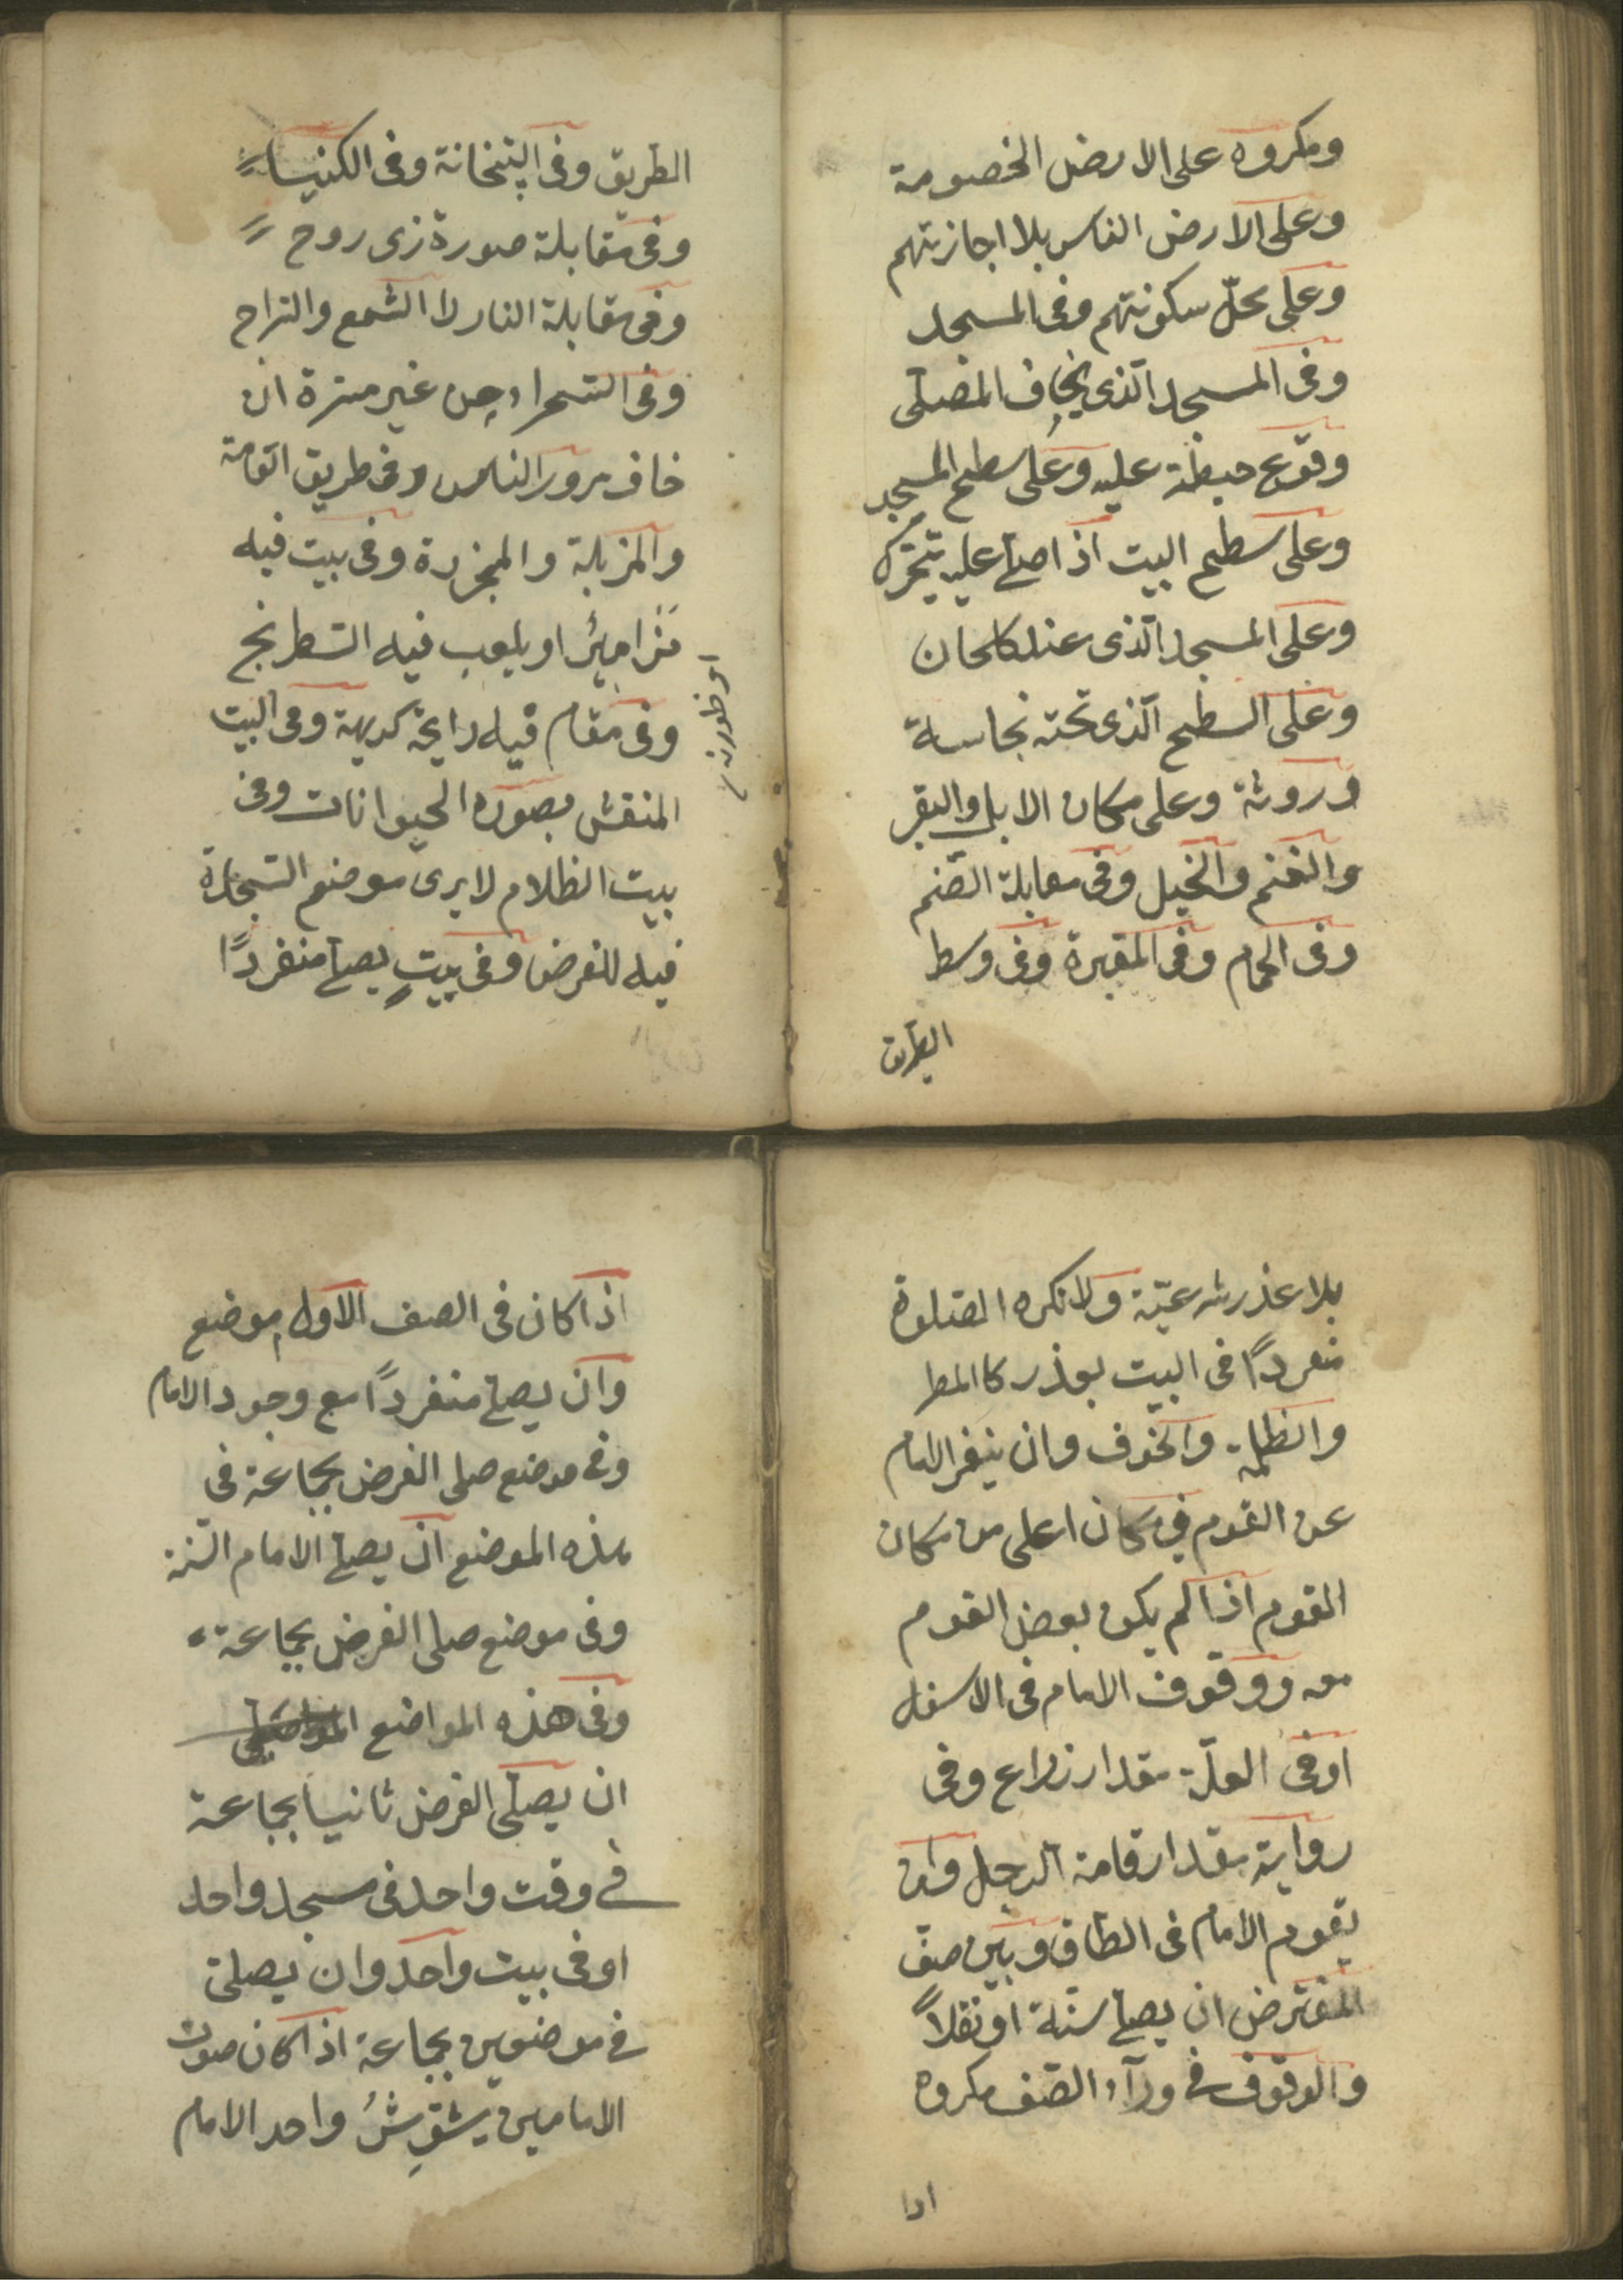 ومكروه على الارض الخصومة
وعلى الارض الناس بلا اجازتهم
وعلى محلّ سكونتهم وفى المسجد
وفى المسجد الّذى يخاف المصلّى
وقوع حيطة عليه وعلى سطح المسجد
وعلى سطح البيت اذا صلّى عليه يتحرّك
وعلى المسجد الّذى عند كلحان
وعلى السطح الّذى تحته نجاسة
وروثة وعلى مكان الابل والبقر
والغنم والخيل وفى مقابلة الصّنم
وفى الحمام وفى المقبرة وفى وسط
الطريق
الطريق وفى البتخانة وفى الكنيساء
وفى مقابلة صورة زى روح
وفى مقابلة النار لا الشمع والتراج
وفى السّحراء من غير سترة ان
خاف مرور الناس وفى طريق العّامة
والمزبلة والمجزرة وفى بيت فيه
مَزاميرُ او يلعب فيه الشطرنج
وفى مقام فيه رايحة كريهة وفى البيت
المنقش بصوره الحيوانات وفى
بيت الظلام لا يرى موضع السّجادة
فيه للفرض وفى بيتٍ يصلّى منفردًا
بلا عذر شرعيّة ولا تكره الصّلوة
منفردًا فى البيت بعذر كا المطر
والظلمة والخوف وان ينفر الامام
عن القوم في مكان اعلى من مكان
القوم اذا لم يكن بعض القوم
معه ووقوف الامام فى الاسفل
اوفى العلّة مقدار زراع وفى
رواية مقدار قامة الرجل وان
يقوم الامام فى الطاق وبين صفّ
المفترض ان يصلّى سنّة او نفلاً
والوقوف فى ورآء الصّف مكروه
اذا
اذا كان فى الصف الاول موضع
وان يصلّى منفردًا مع وجود الامام
وفى موضع صلى الفرض بجماعة فى
هذه الموضع ان يصلّى الامام السّنة
وفى موضع صلى الفرض بجماعة
وفى هذه المواضع
ان يصلّى الفرض ثانيا بجماعة
فى وقت واحد فى مسجد واحد
اوفى بيت واحد وان يصلّى
فى موضوين بجماعة اذا كان صوت
الامامين يشقِشُ واحد الامام